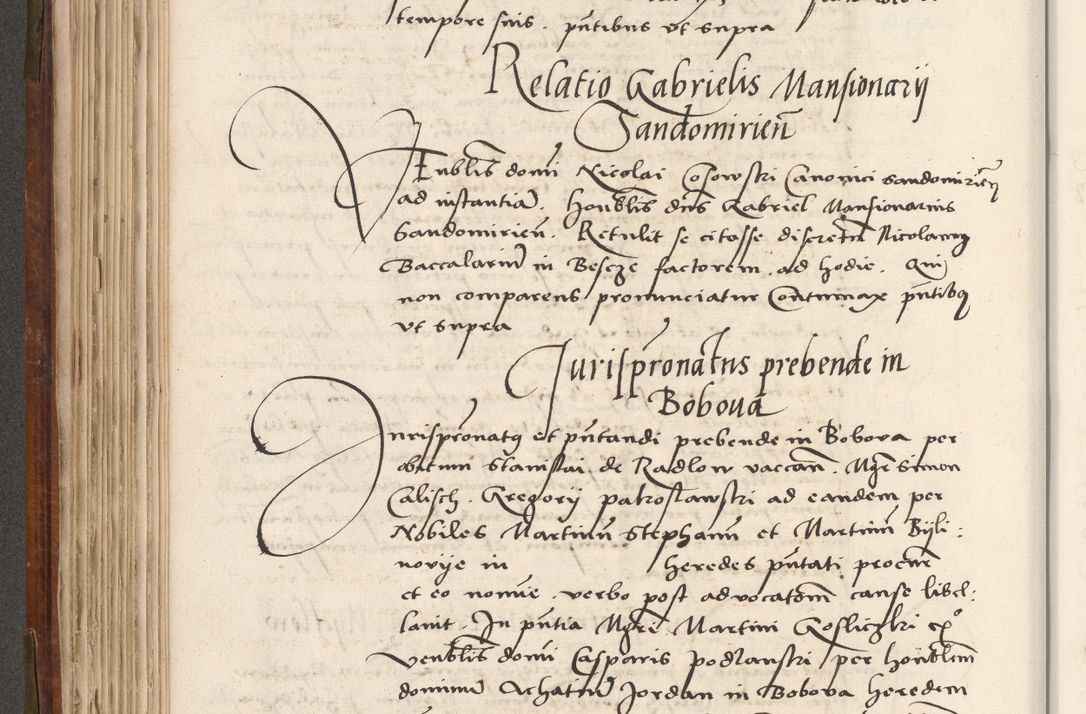 tempore suis. pntibus ut supra
Relatio Gabrielis Mansionarij
Sandomirien
Venblis domi Nicolai Cosowski Canonici Sandomirien
ad instantia. Honblis dns Gabriel Mansionarius
Sandomirien. Retulit se citasse discretu Nicolaum
Baccalariu in Bescze factorem. ad hodie. Qui
non comparens pronunciatur Contumax pntibus
ut supra
Jurispronatus prebende in
Bobova
Jurispronatus et pntandi prebende in Bobova per
obitum Stanislai de Radlow vacan. Mgr Simon
Calisch. Gregorij patroslawski ad eandem per
Nobiles Martinu Stephanu et Martinu Byli:
novije in heredes pntati procur
et eo nomie. verbo post advocatom cause libel:
lavit. In pntia Mgri Martini Gosliczki ex
venblis domi Casparis podlanski per honblem
dominu Achatiu Jordan in Bobova heredem